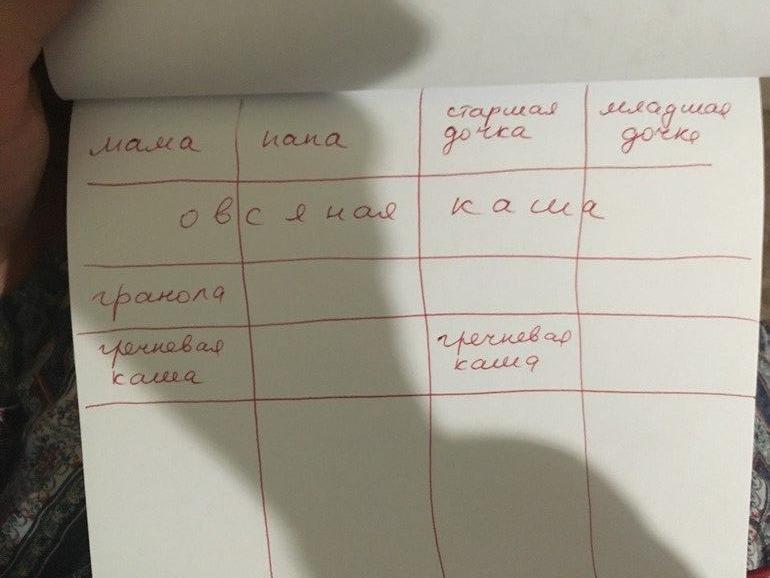 мама папа старшая младшая
дочка дочке
овсяная каша
гранола
гречневая гречневая
каша каша